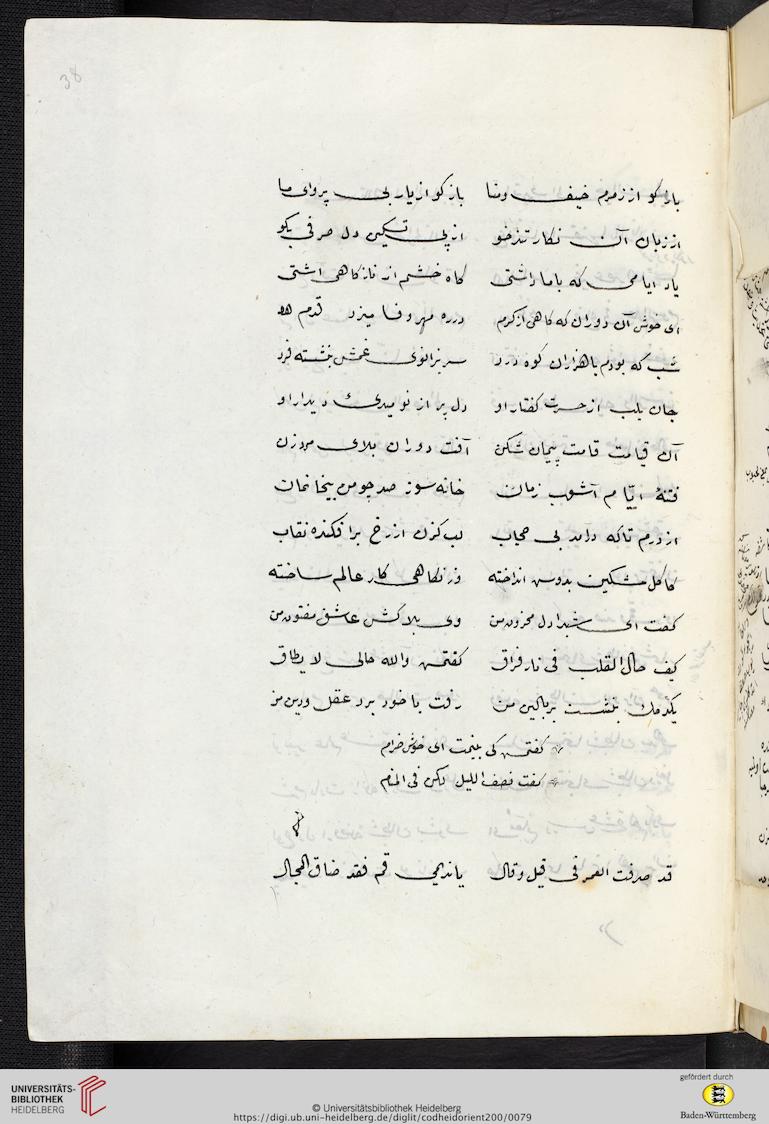 38
بازکو از زمزم خیف و منا بازکو از یار بی پروای ما
از زبان آن نکار تندخو از پی تسکین دل حرفی بکو
یاد ایامی که با ما داشتی کاه خشم از ناز کاهی آشتی
ای خوش آن دوران که کاهی از کرم در ره مهر و فا میزد قدم
شب که بودم با هزاران کوه درد سر بزانوی غمش بنشسته فرد
جان بلب از حسرت کفتار او دل پر از نومیدی دیدار او
آن قیامت قامت پیمان شکن آفت دوران بلای مرد و زن
فتنهٔ ایام آشوب زمان خانه سوز صد چو من بیخانمان
از درم ناکه درآمد بی حجاب لب کزان از رخ برافکنده نقاب
کاکل مشکین بدوش انداخته وز نکاهی کار عالم ساخته
کفت ای شیدا دل محزون من وی بلاکش عاشق مفتون من
کیف حال القلب فی نار فراق کفتمش والله حالی لا یطاق
یکدمک بنشست بر بالین من رفت با خود برد عقل و دین من
کفتمش کی بینمت ای خوش خرام
کفت نصف اللیل لکن فی المنام
قد صرفت العمر فی قیل و قال یا ندیمی قم فقد ضاق المجال
UNIVERSITÄTS-
BIBLIOTHEK
HEIDELBERG
© Universitätsbibliothek Heidelberg
https://digi.ub.uni-heidelberg.de/diglit/codheidorient200/0079
gefördert durch
Baden-Württemberg